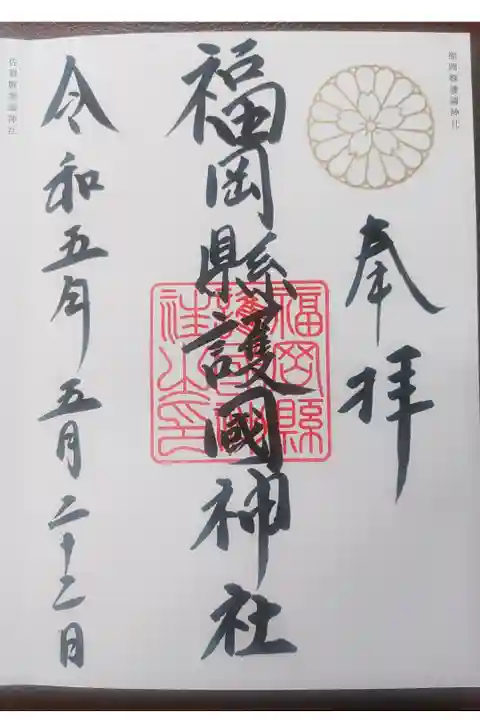 福岡縣護國神社
奉拝
福岡縣護國神社
福岡縣
社之印
令和五年五月二十二日
佐賀縣護國神社